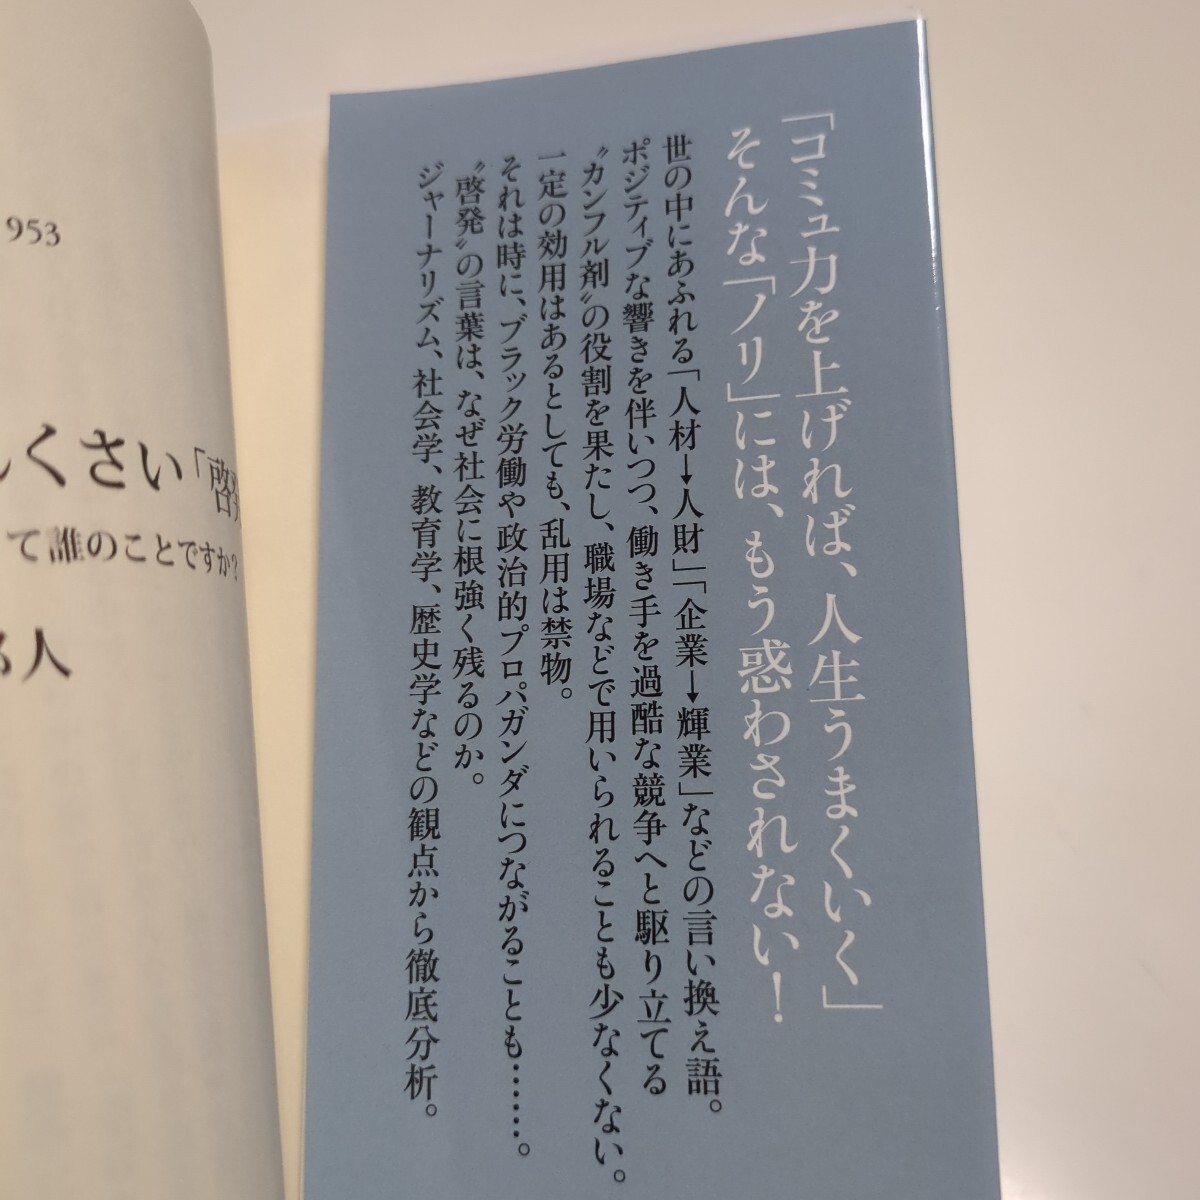 「コミュ力を上げれば、人生うまくいく」
そんな「ノリ」には、もう惑わされない！
世の中にあふれる「人材→人財」「企業→輝業」などの言い換え語。
ポジティブな響きを伴いつつ、働き手を過酷な競争へと駆り立てる
〝カンフル剤〟の役割を果たし、職場などで用いられることも少なくない。
一定の効用はあるとしても、乱用は禁物。
それは時に、ブラック労働や政治的プロパガンダにつながることも……。
〝啓発〟の言葉は、なぜ社会に根強く残るのか。
ジャーナリズム、社会学、教育学、歴史学などの観点から徹底分析。
953
くさい「啓
て誰のことですか？
る人